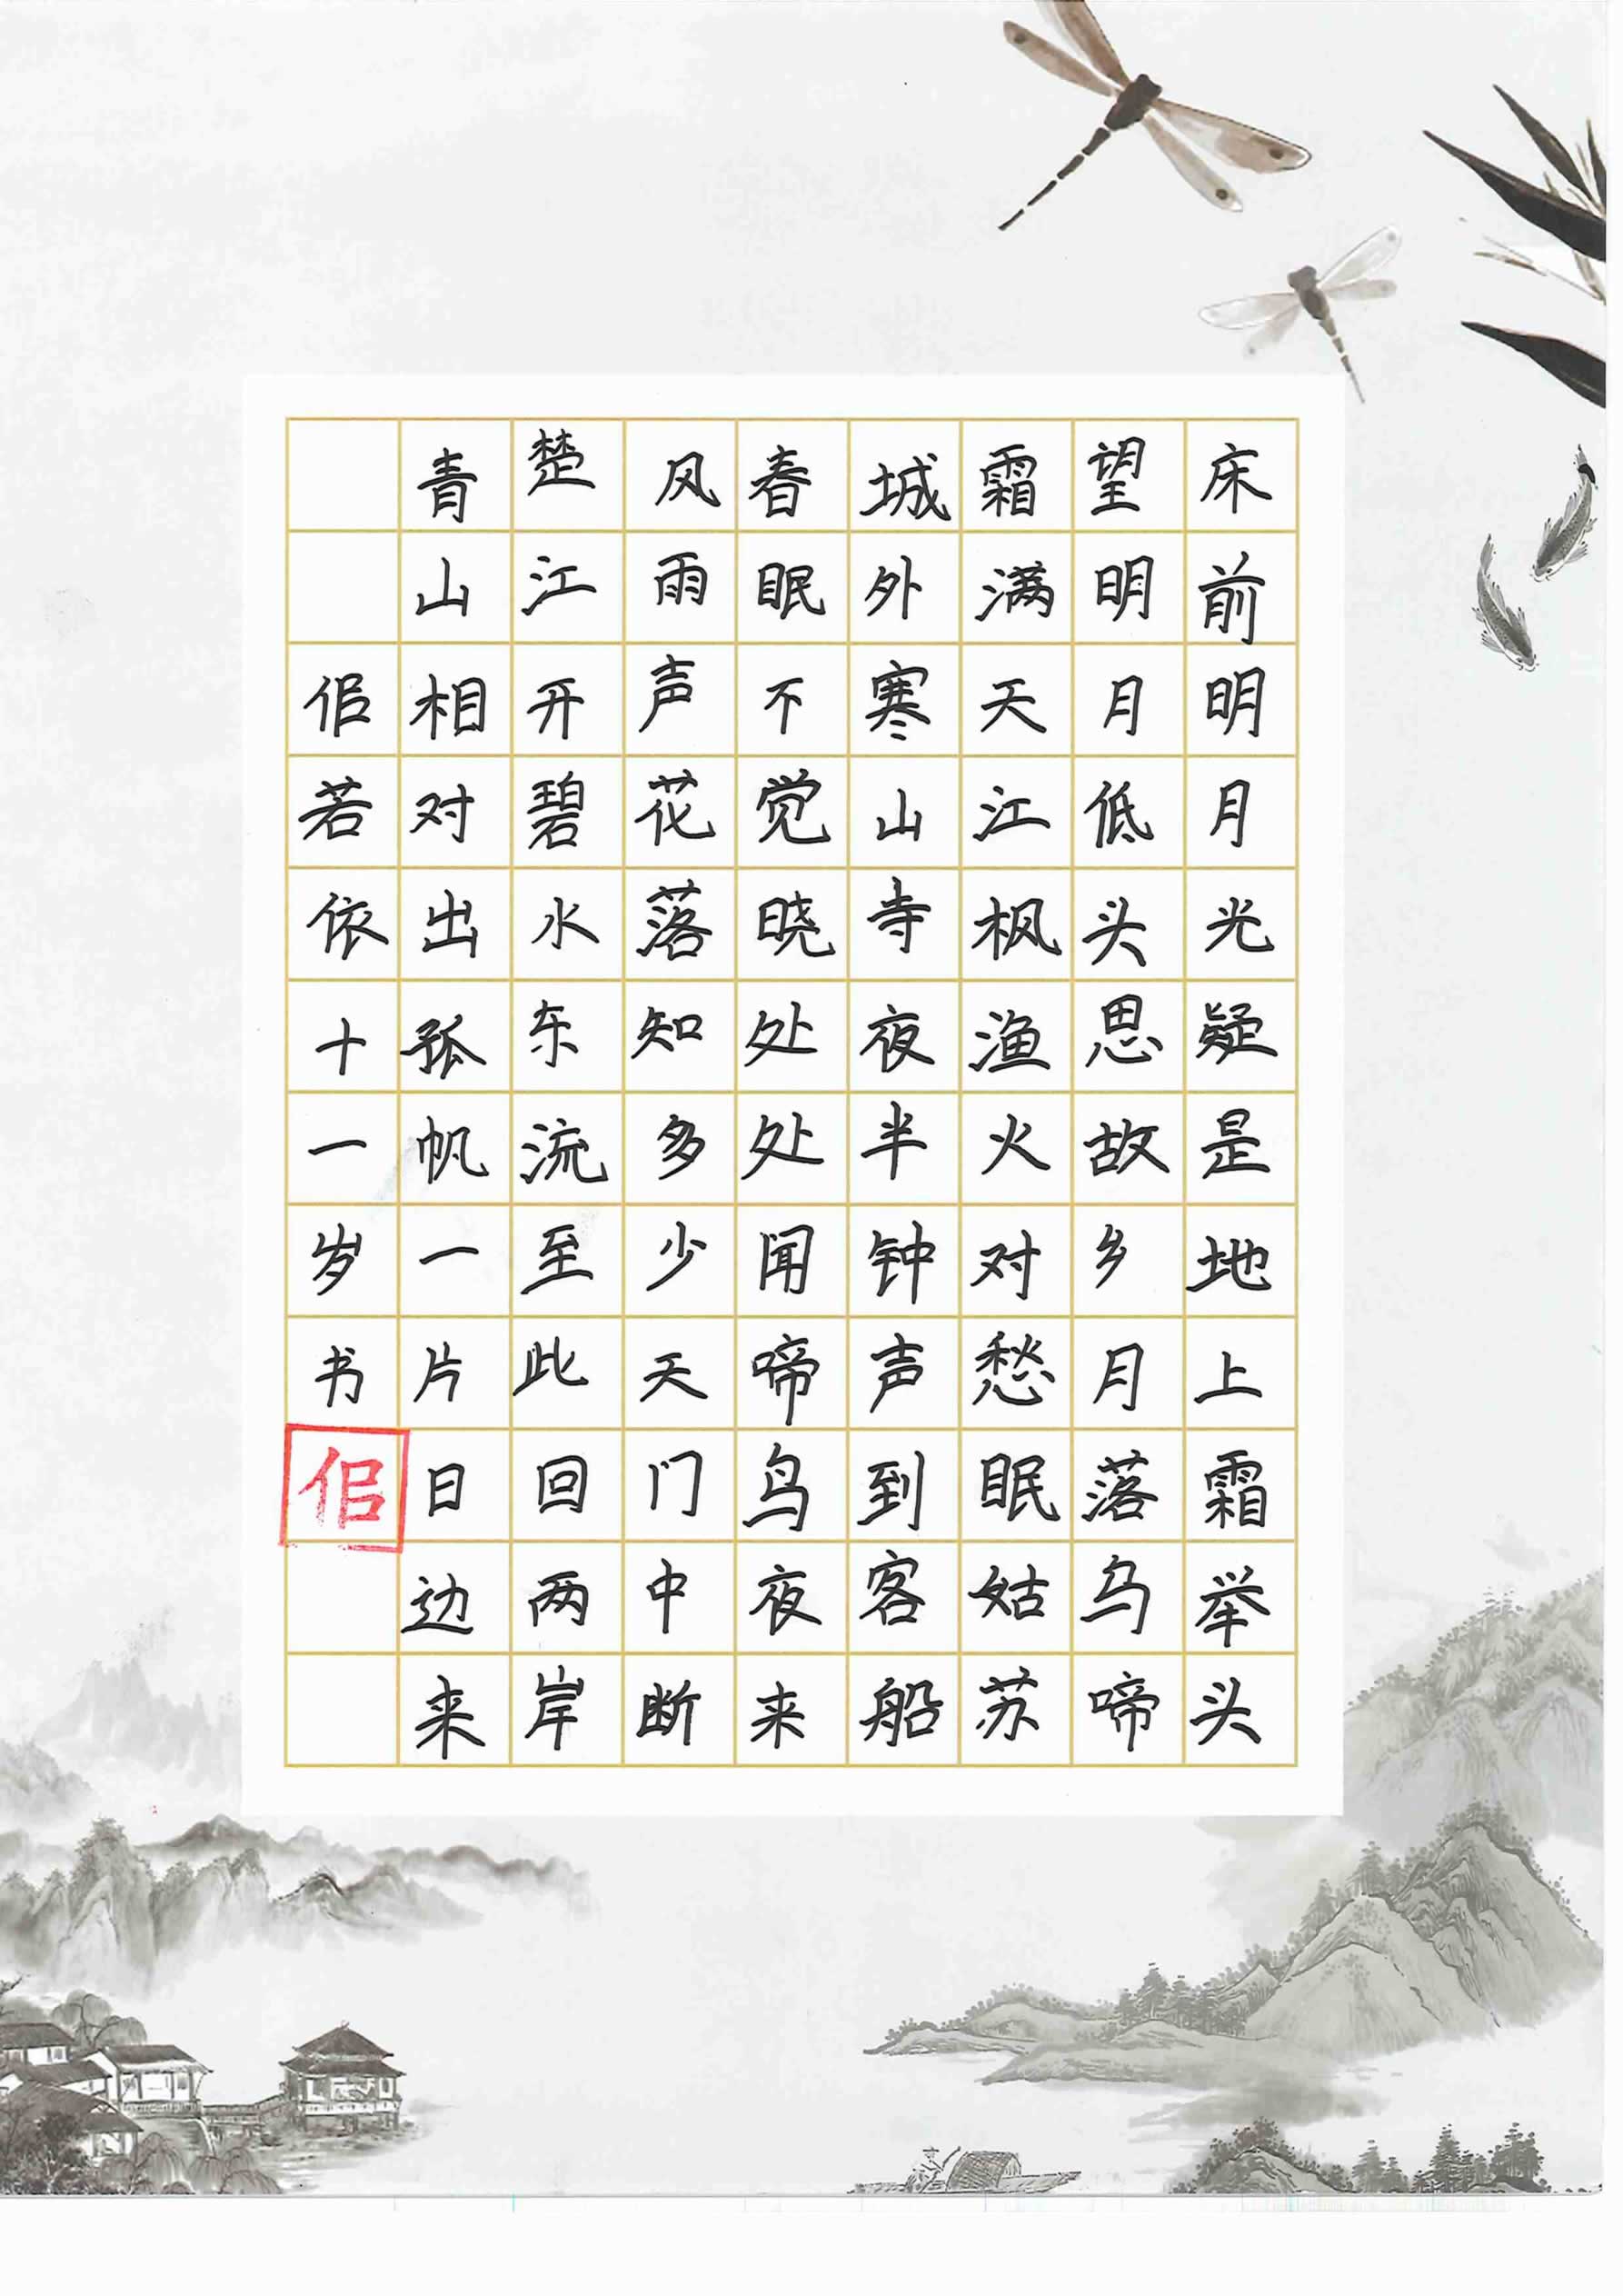 床前明月光疑是地上霜举头
望明月低头思故乡月落乌啼
霜满天江枫渔火对愁眠姑苏
城外寒山寺夜半钟声到客船
春眠不觉晓处处闻啼鸟夜来
风雨声花落知多少天门中断
楚江开碧水东流至此回两岸
青山相对出孤帆一片日边来
佀若依十一岁书
佀